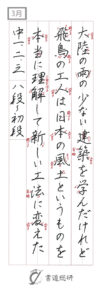 3月
大陸の雨の少ない建築を学んだけれど
飛鳥の工人は日本の風土というものを
本当に理解して新しい工法に変えた
中一・二・三 八段〜初段
書道総研